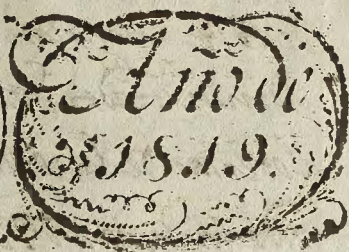 Anno
1819.